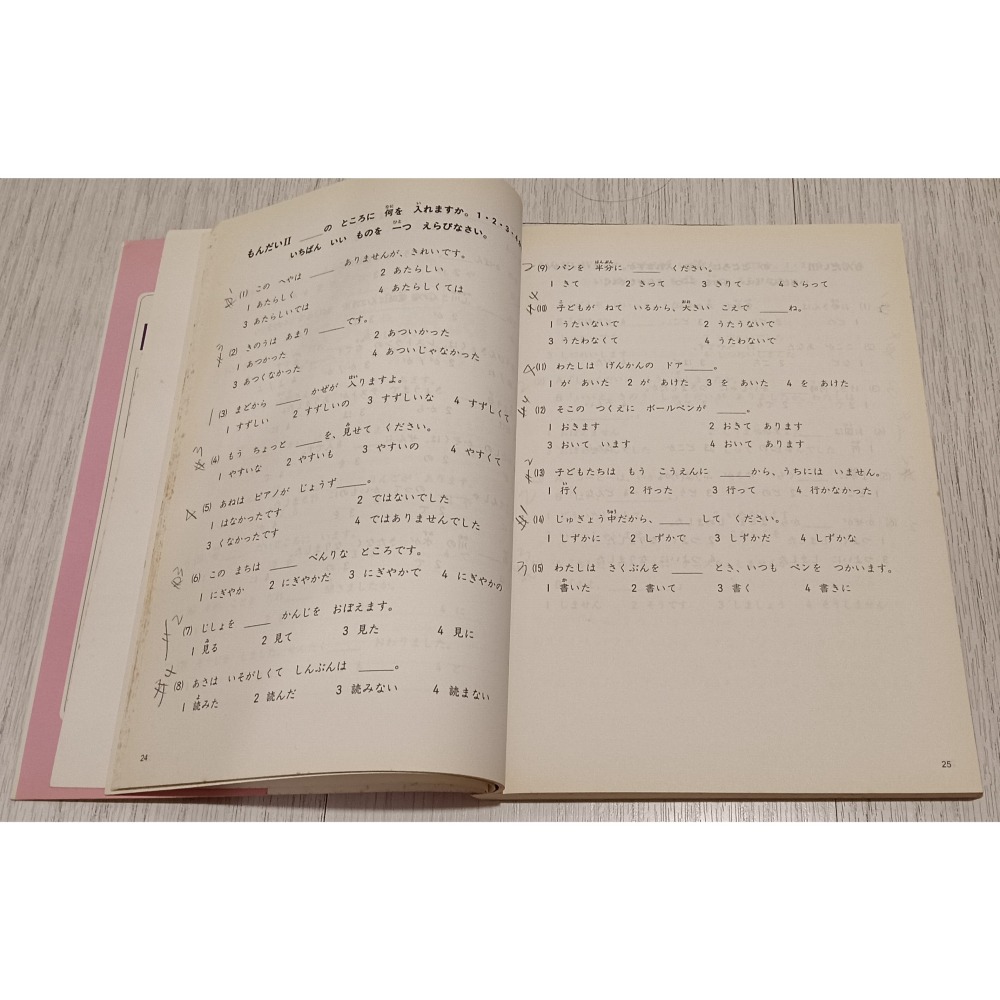 もんだいII ____の ところに 何を 入れますか。1・2・3・4
いちばん いい ものを 一つ えらびなさい。
(1) この へやは ____ ありませんが、きれいです。
1 あたらしく 2 あたらしい
3 あたらしいでは 4 あたらしくては
(2) きのうは あまり ____です。
1 あつかった 2 あついかった
3 あつくなかった 4 あついじゃなかった
(3) まどから ____ かぜが 入りますよ。
1 すずしい 2 すずしいの 3 すずしいな 4 すずしくて
(4) もう ちょっと ____を、見せて ください。
1 やすいな 2 やすいも 3 やすいの 4 やすくて
(5) あねは ピアノが じょうず____。
1 はなかったです 2 ではないでした
3 くなかったです 4 ではありませんでした
(6) この まちは ____ べんりな ところです。
1 にぎやか 2 にぎやかだ 3 にぎやかで 4 にぎやかの
(7) じしょを ____ かんじを おぼえます。
1 見る 2 見て 3 見た 4 見に
(8) あさは いそがしくて しんぶんは ____。
1 読みた 2 読んだ 3 読みない 4 読まない
24
(9) パンを 半分に ____ ください。
1 きて 2 きって 3 きりて 4 きらって
(10) 子どもが ねて いるから、大きい こえで ____ね。
1 うたいないで 2 うたうないで
3 うたわなくて 4 うたわないで
(11) わたしは げんかんの ドア____。
1 が あいた 2 が あけた 3 を あいた 4 を あけた
(12) そこの つくえに ボールペンが ____。
1 おきます 2 おきて あります
3 おいて います 4 おいて あります
(13) 子どもたちは もう こうえんに ____から、うちには いません。
1 行く 2 行った 3 行って 4 行かなかった
(14) じゅぎょう中だから、____ して ください。
1 しずかに 2 しずかで 3 しずかだ 4 しずかな
(15) わたしは さくぶんを ____ とき、いつも ペンを つかいます。
1 書いた 2 書いて 3 書く 4 書きに
25